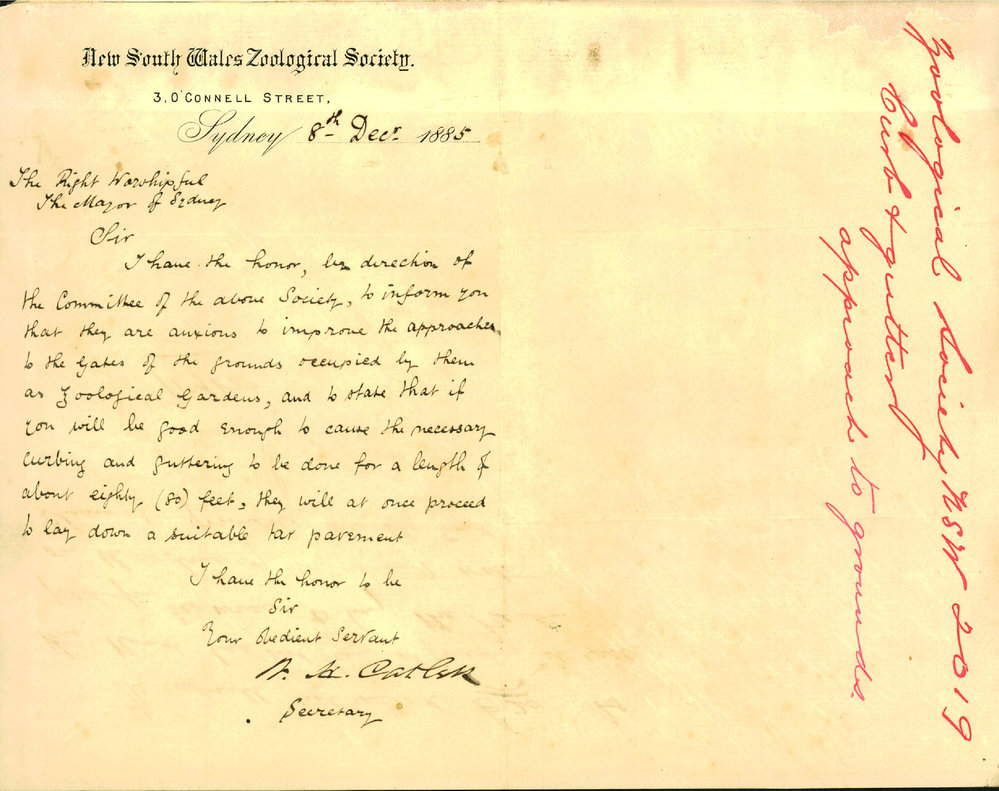 New South Wales Zoological Society.
3, O'CONNELL STREET,
Sydney 8th Decr 1885
The Right Worshipful
The Mayor of Sydney
Sir
I have the honor, by direction of
the Committee of the above Society, to inform you
that they are anxious to improve the approaches
to the Gates of the grounds occupied by them
as Zoological Gardens, and to state that if
you will be good enough to cause the necessary
curbing and guttering to be done for a length of
about eighty (80) feet, they will at once proceed
to lay down a suitable tar pavement
I have the honor to be
Sir
Your Obedient Servant
H. Catlett
Secretary
Zoological Society NSW 2019
Curb & gutterg
approach to grounds.